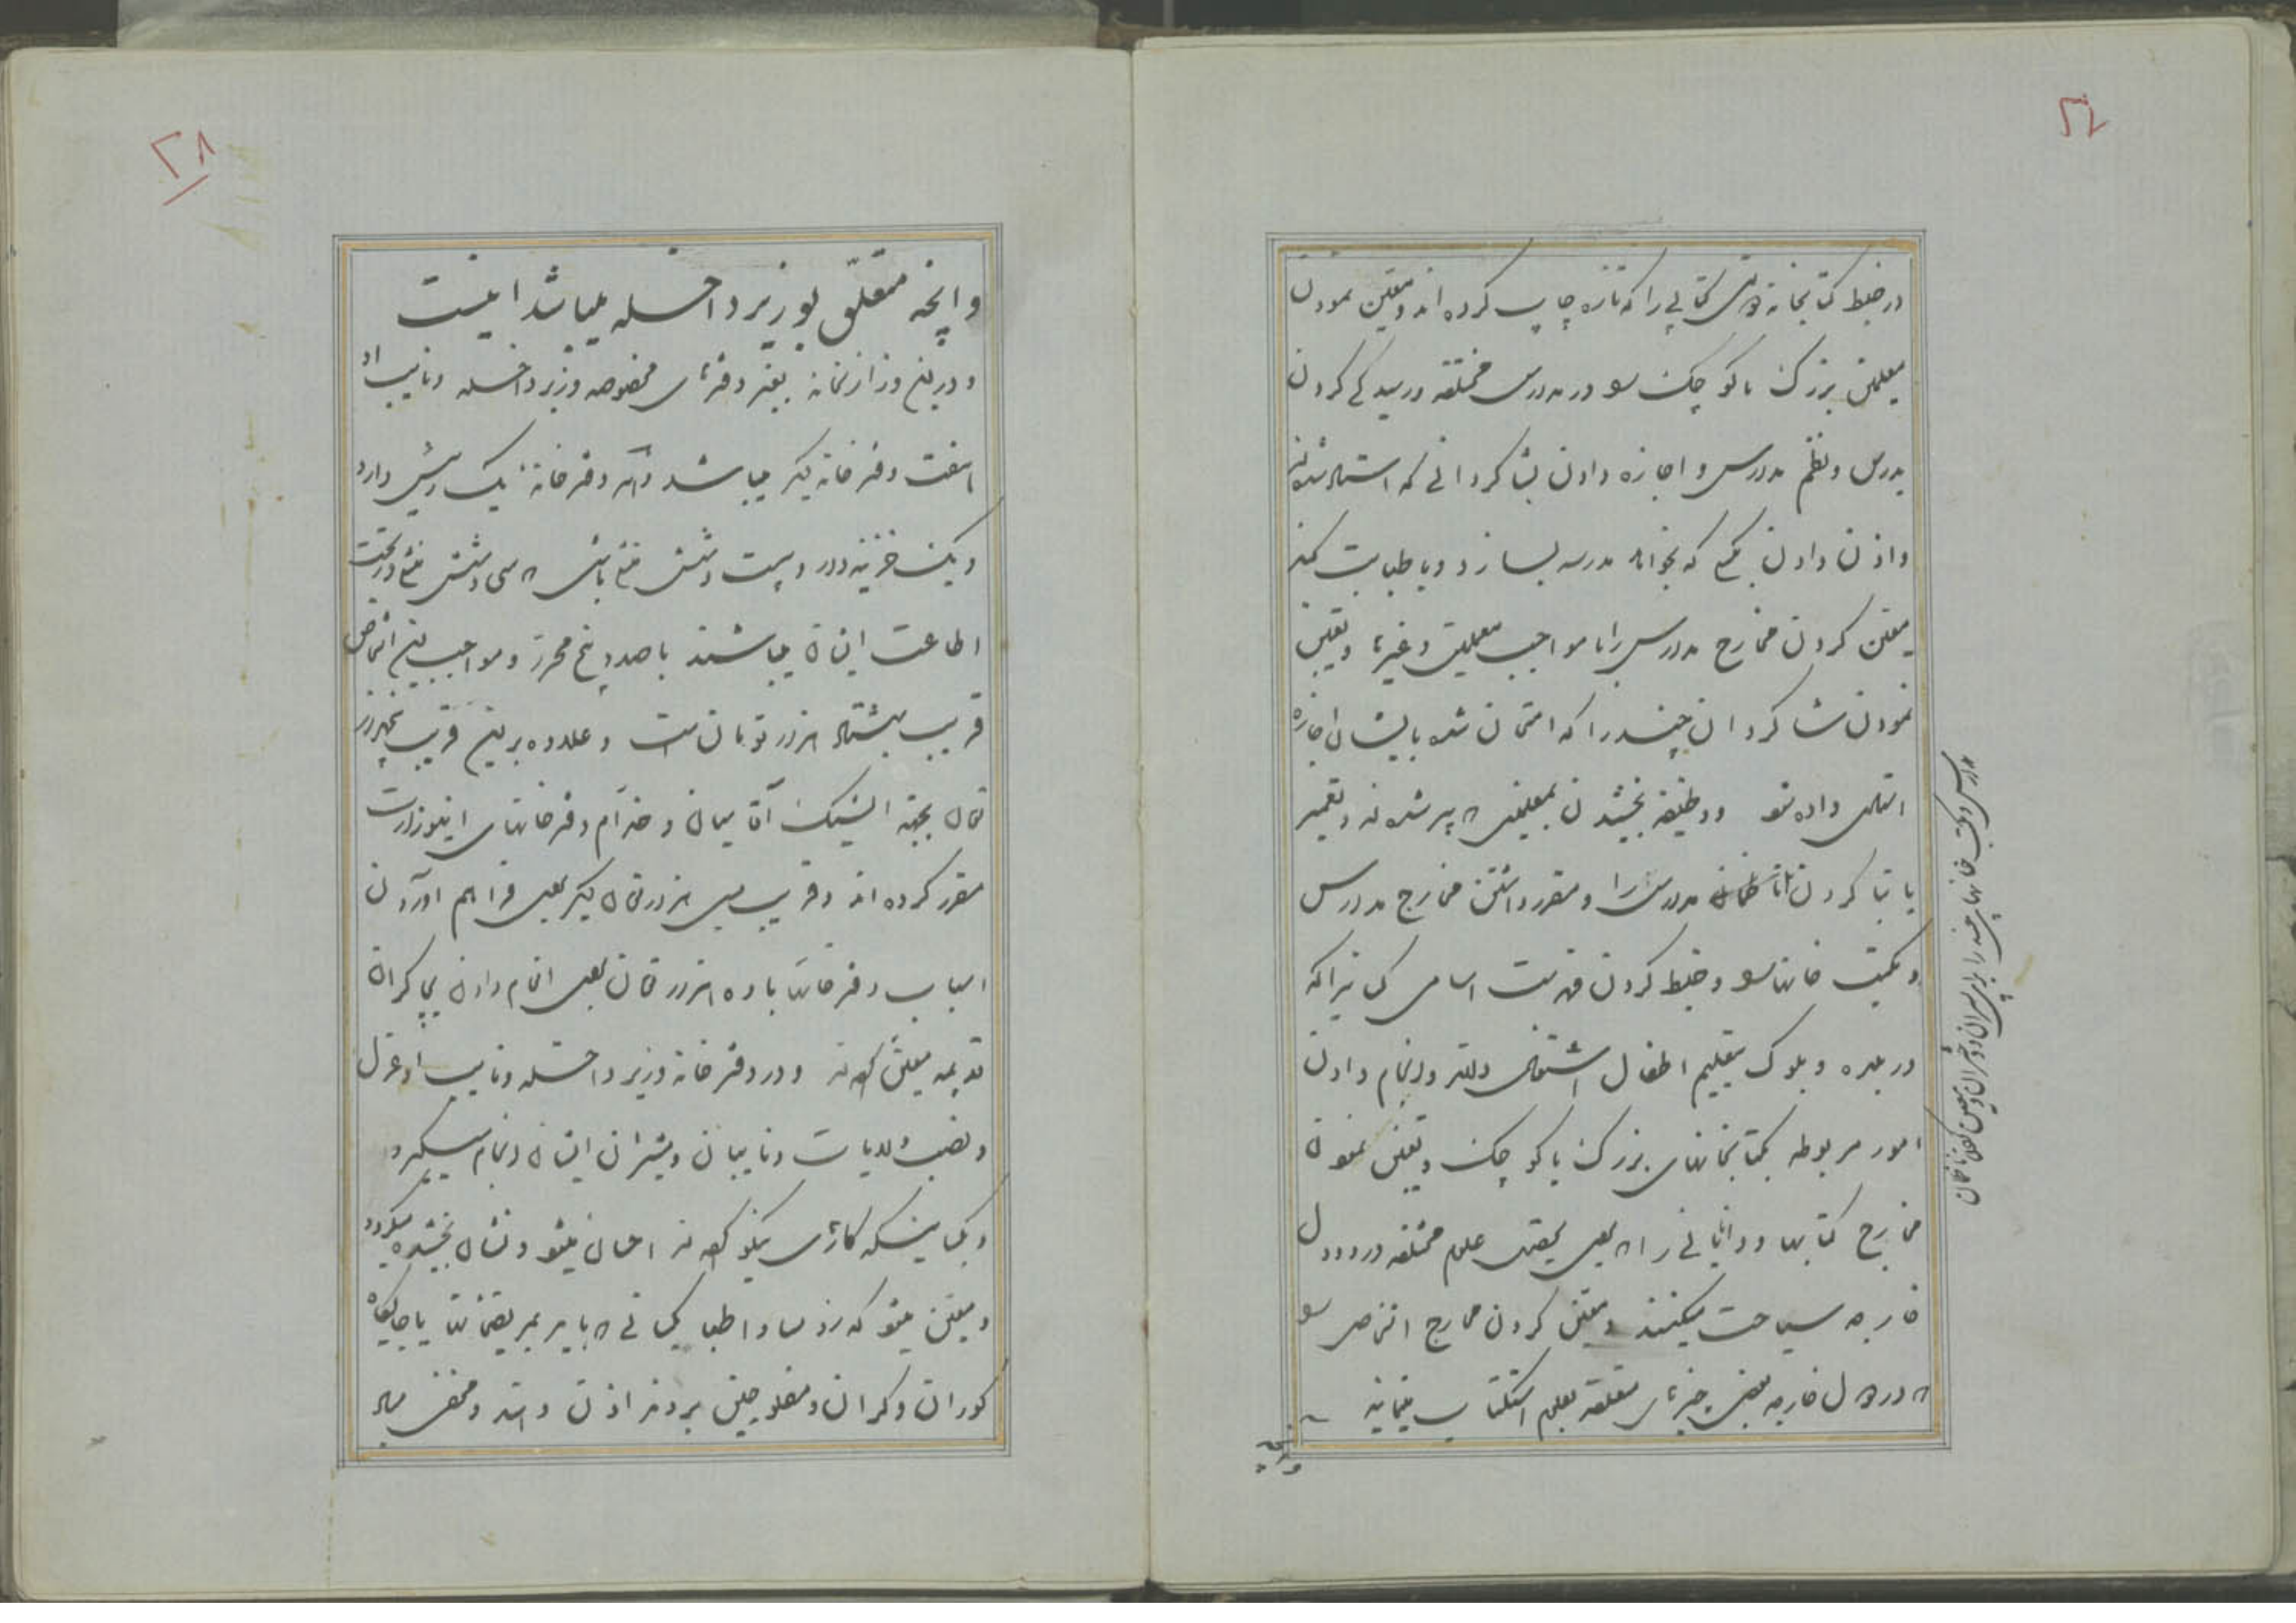 در ضبط کتابخانه دولتی کتابی را که تازه چاپ کرده اند و معین نمودن
معلمین بزرگ یا کوچک در مدارس مختلفه و رسیدگی کردن
بدرس و نظم مدارس و اجازه دادن بشاکردانی که استاد شده اند
و اذن دادن بکسی که بخواهد مدرسه بسازد و یا طبابت کند
معین کردن مخارج مدارس را با مواجب معلمین و غیرها و تعیین
نمودن شاکردان چند را که امتحان شده بایشان اجازه
استادی داده شود و وظیفه بخشیدن بمعلمین که پیر شده اند و تعمیر
یا بنا کردن مدارس را و مقرر داشتن مخارج مدارس
و مکتب خانها و ضبط کردن فهرست اسامی کسانیرا که
در بلده و بلوک بتعلیم اطفال اشتغال دارند و انجام دادن
امور مربوطه بکتابخانهای بزرگ یا کوچک و تعیین نمودن
مخارج کتابها و دانایانی را که بجهت تحصیل علوم مختلفه در دول
خارجه سیاحت میکنند و معین کردن مخارج اشخاص
که در دول خارجه بعضی چیزهای متعلقه بعلم استکتاب مینمایند
مدارس و مکتب خانهای چند را برای پسران و دختران
وانچه
۲۸
وانچه متعلّق بوزیر داخله میباشد اینست
و در این وزارتخانه بغیر دفترهای مخصوصه وزیر داخله و نایب او
هفت دفترخانه دیگر میباشد و هر دفترخانه یک رئیس دارد
و یک خزینه دار و بیست و شش منشی باشی که سی و شش منشی در تحت
اطاعت ایشان میباشند با صد و پنج محرر و مواجب این اشخاص
قریب هشتاد هزار تومان است و علاوه بر این قریب پنجهزار
تومان بجهة ایشیک آقاسیان و خدّام دفترخانهای اینوزارت
مقرر کرده اند و قریب سی هزار تومان دیگر بجهة فراهم آوردن
اسباب دفترخانها با ده هزار تومان بجهة انعام دادن بچاکران
قدیمه معین کرده اند و در دفترخانه وزیر داخله و نایب او عزل
و نصب ولات و نایبان و مشیران ایشان انجام میگیرد
و بکسانیکه کارهای نیکو کرده اند احسان میشود و نشان بخشیده میگردد
و معین میشود که رؤسا و اطبا کسانی که باید بمریضخانها یا جایگاه
کوران و کران و مفلوجین بروند اذن دهند و محض